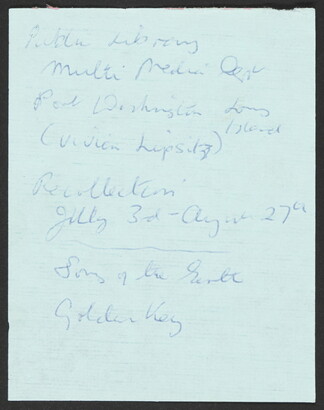 Public Library
Multi Media Dept
Port Washington Long
Island
(Vivien Lipsitz)
Recollection
July 3d - August 27th
Song of the Earth
Golden Key